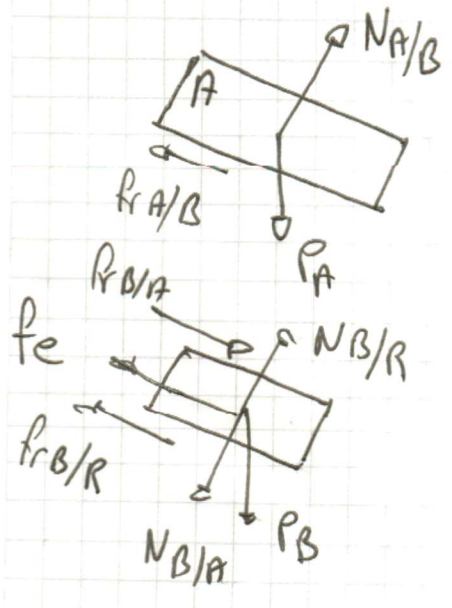 N A/B
A
fr A/B
P A
fr B/A
fe
N B/R
fr B/R
N B/A
P B